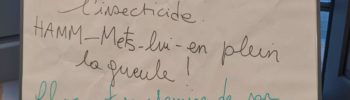 l'insecticide.
HAMM – Mets-lui-en plein
la gueule !